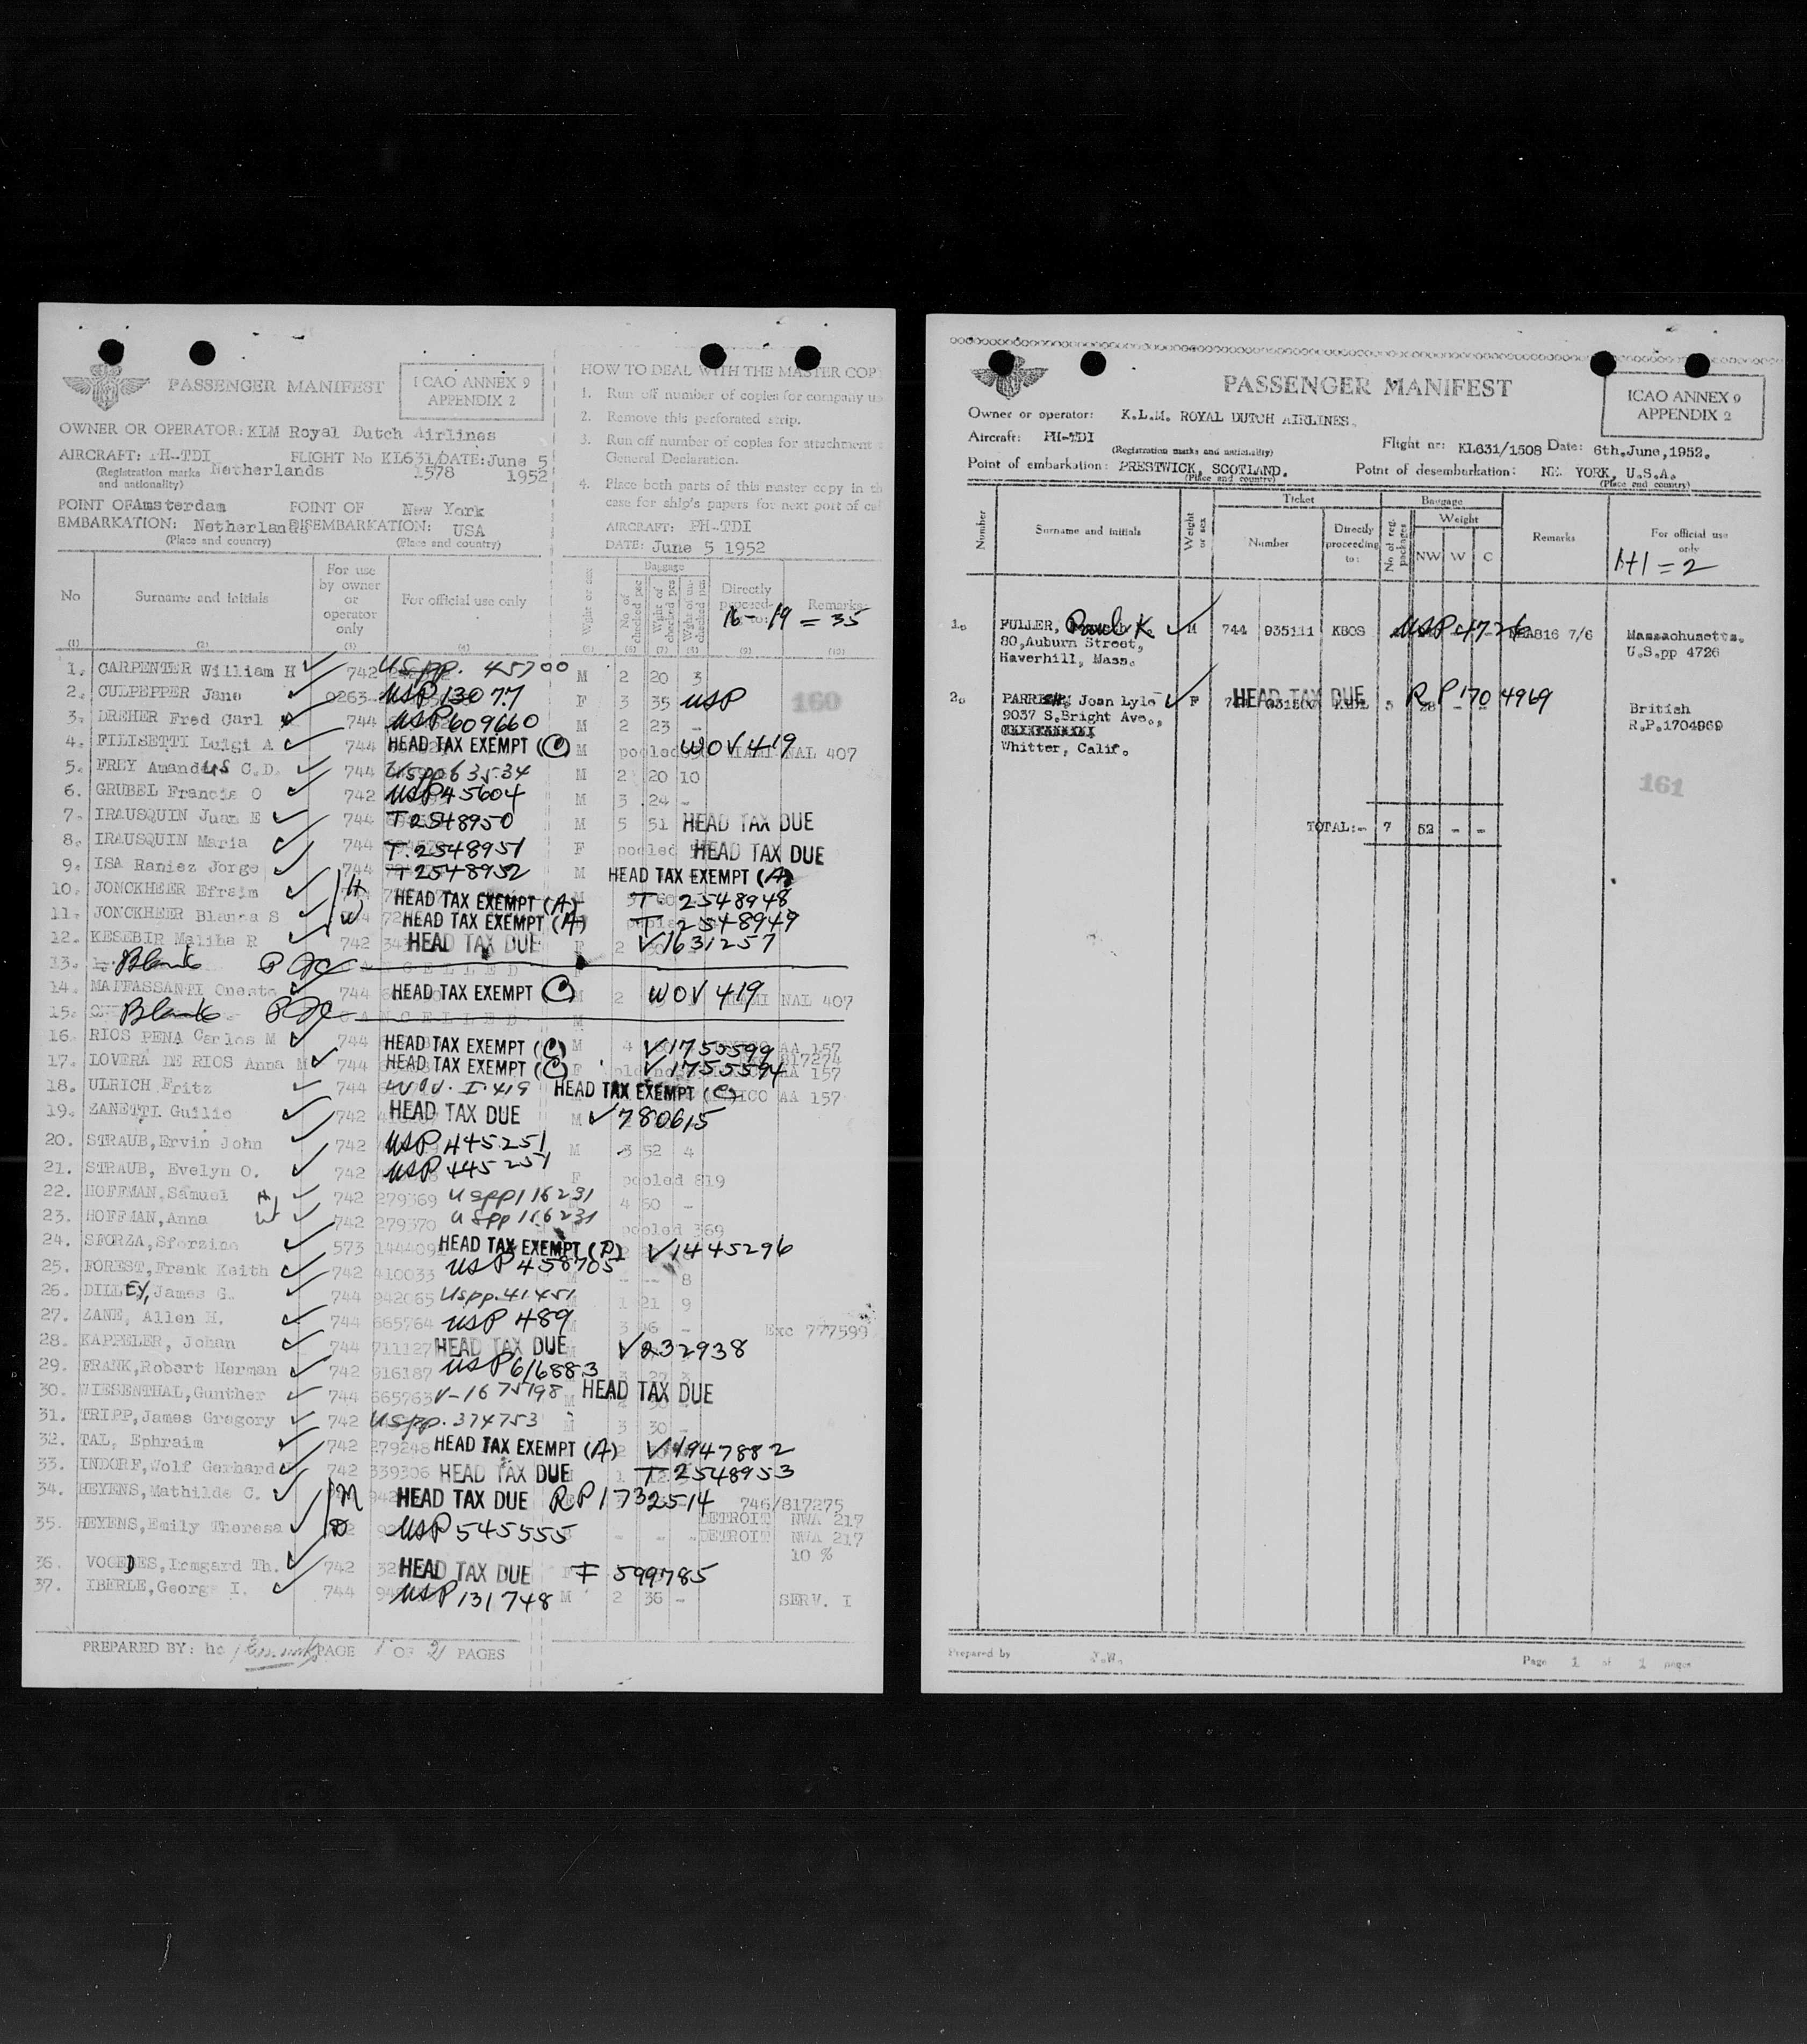 PASSENGER MANIFEST
ICAO ANNEX 9
APPENDIX 2
OWNER OR OPERATOR: KLM Royal Dutch Airlines
AIRCRAFT: PH-TDI FLIGHT No KL631/ DATE: June 5
(Registration marks and nationality) Netherlands 1578 1952
POINT OF EMBARKATION: Amsterdam Netherlands POINT OF DISEMBARKATION: New York USA
(Place and country) (Place and country)
HOW TO DEAL WITH THE MASTER COP
1. Run off number of copies for company us
2. Remove this perforated strip.
3. Run off number of copies for attachment
General Declaration.
4. Place both parts of this master copy in th
case for ship's papers for next port of cal
AIRCRAFT: PH-TDI
DATE: June 5 1952
No Surname and initials For use by owner or operator only For official use only Weight or sex Baggage No of checked pce Wght of checked pce Wght of un-checked pce Directly proceed- to: Remarks
16-19 = 35
(1) (2) (3) (4) (5) (6) (7) (8) (9) (10)
1. CARPENTER William H 742 US pp. 45700 M 2 20 3
2. CULPEPPER Jane 0263 USP 13077 F 3 35 USP 160
3. DREHER Fred Carl 744 USP 609660 M 2 23 -
4. FILISETTI Luigi A 744 HEAD TAX EXEMPT (C) M pooled WOV 419 MIAMI NAL 407
5. FREY Amandus C.D. 744 USpp 63534 M 2 20 10
6. GRUBEL Francis O 742 USP 45604 M 3 24 -
7. IRAUSQUIN Juan E 744 T 2548950 M 5 51 HEAD TAX DUE
8. IRAUSQUIN Maria 744 T. 2548951 F pooled HEAD TAX DUE
9. ISA Raniez Jorge 744 T 2548952 M HEAD TAX EXEMPT (A)
10. JONCKHEER Efraim H HEAD TAX EXEMPT (A) T- 2548948
11. JONCKHEER Blanca S W HEAD TAX EXEMPT (A) T- 2548949
12. KESEBIR Maliha R 742 HEAD TAX DUE F 2 V1631257
13. Blank CANCELLED
14. MAFFASSANTI Oneste 744 HEAD TAX EXEMPT (C) M 2 WOV 419 MIAMI NAL 407
15. Blank CANCELLED M
16. RIOS PENA Carlos M 744 HEAD TAX EXEMPT (C) M 4 V1755599 AA 157
17. LOVERA DE RIOS Anna M 744 HEAD TAX EXEMPT (C) F V1755594 817274 AA 157
18. ULRICH Fritz 744 WOV. I. 419 HEAD TAX EXEMPT (C) MEXICO AA 157
19. ZANETTI Guilio 742 HEAD TAX DUE M V780615
20. STRAUB, Ervin John 742 USP 445251 M 3 52 4
21. STRAUB, Evelyn O. 742 USP 445251 F pooled 819
22. HOFFMAN, Samuel H 742 279369 USpp 116231 4 60 -
23. HOFFMAN, Anna W 742 279370 USpp 116231 pooled 369
24. SFORZA, Sforzino 573 144409 HEAD TAX EXEMPT (P) V1445296
25. FOREST, Frank Keith 742 410033 USP 458705 M - -- 8
26. DILLEY, James G. 744 942065 USpp. 41451 1 21 9
27. ZANE, Allen H. 744 665764 USP 489 M 3 46 - Exc 777599
28. KAPPELER, Johan 744 711127 HEAD TAX DUE M V232938
29. FRANK, Robert Herman 742 916187 USP 616883
30. WIESENTHAL, Gunther 744 665763 V-1675798 M HEAD TAX DUE
31. TRIPP, James Gregory 742 USpp. 374753 M 3 30 -
32. TAL, Ephraim 742 279248 HEAD TAX EXEMPT (A) 2 V1947882
33. INDORF, Wolf Gerhard 742 339306 HEAD TAX DUE 1 12 T. 2548953
34. HEYENS, Mathilde C. M HEAD TAX DUE RP 1732514 746/817275
DETROIT NWA 217
35. HEYENS, Emily Theresa D USP 545555 - - - DETROIT NWA 217
10 %
36. VOGEDES, Irmgard Th. 742 HEAD TAX DUE F 599785
37. IBERLE, Georg I. 744 USP 131748 M 2 36 - SERV. I
PREPARED BY: hc PAGE 1 OF 2 PAGES
PASSENGER MANIFEST
ICAO ANNEX 9
APPENDIX 2
Owner or operator: K.L.M. ROYAL DUTCH AIRLINES.
Aircraft: PH-TDI Flight nr: KL631/1508 Date: 6th.June,1952.
(Registration marks and nationality)
Point of embarkation: PRESTWICK, SCOTLAND. Point of desembarkation: NEW YORK, U.S.A.
(Place and country) (Place and country)
Number Surname and initials Weight or sex Ticket Number Directly proceeding to: Baggage No of reg. packages Weight NW W C Remarks For official use only
1+1 = 2
1. FULLER, Paul K. M 744 935111 KBOS USP 4726 816 7/6 Massachusetts.
80,Auburn Street, U.S.pp 4726
Haverhill, Mass.
2. PARRISH, Joan Lyle F HEAD TAX DUE 5 28 RP 1704969 British
9037 S.Bright Ave., R.P.1704969
Whitter, Calif.
161
TOTAL:- 7 52 - -
Prepared by Y.W. Page 1 of 1 pages